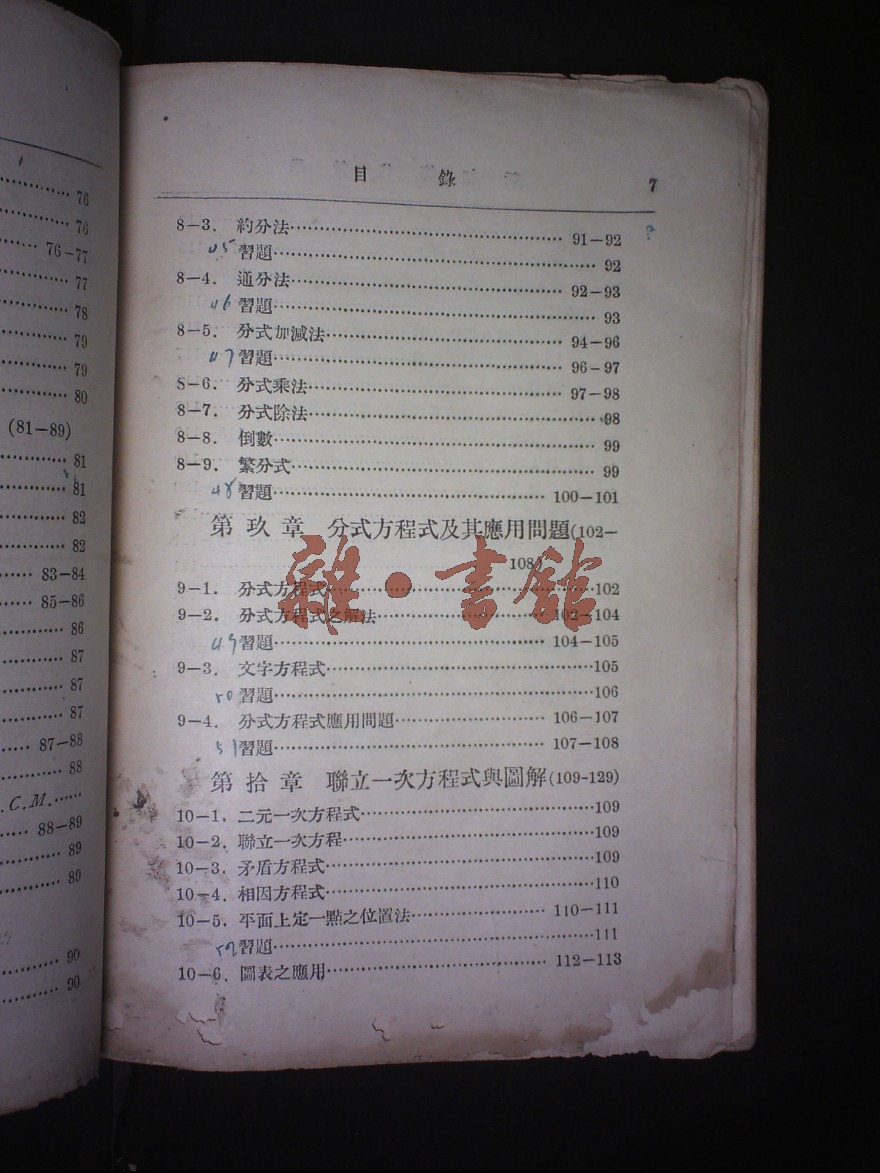 76
76
76-77
77
78
79
79
80
(81-89)
81
81
82
82
83-84
85-86
86
87
87
87
87-88
88
.C.M.……
88-89
89
89
90
90
目 錄 7
8-3. 約分法…………91-92
45 習題…………92
8-4. 通分法…………92-93
46 習題…………93
8-5. 分式加減法…………94-96
47 習題…………96-97
8-6. 分式乘法…………97-98
8-7. 分式除法…………98
8-8. 倒數…………99
8-9. 繁分式…………99
48 習題…………100-101
第玖章 分式方程式及其應用問題(102-
108)
9-1. 分式方程式…………102
9-2. 分式方程式之解法…………102-104
49 習題…………104-105
9-3. 文字方程式…………105
50 習題…………106
9-4. 分式方程式應用問題…………106-107
51 習題…………107-108
第拾章 聯立一次方程式與圖解(109-129)
10-1. 二元一次方程式…………109
10-2. 聯立一次方程…………109
10-3. 矛盾方程式…………109
10-4. 相因方程式…………110
10-5. 平面上定一點之位置法…………110-111
52 習題…………111
10-6. 圖表之應用…………112-113
雜·書館